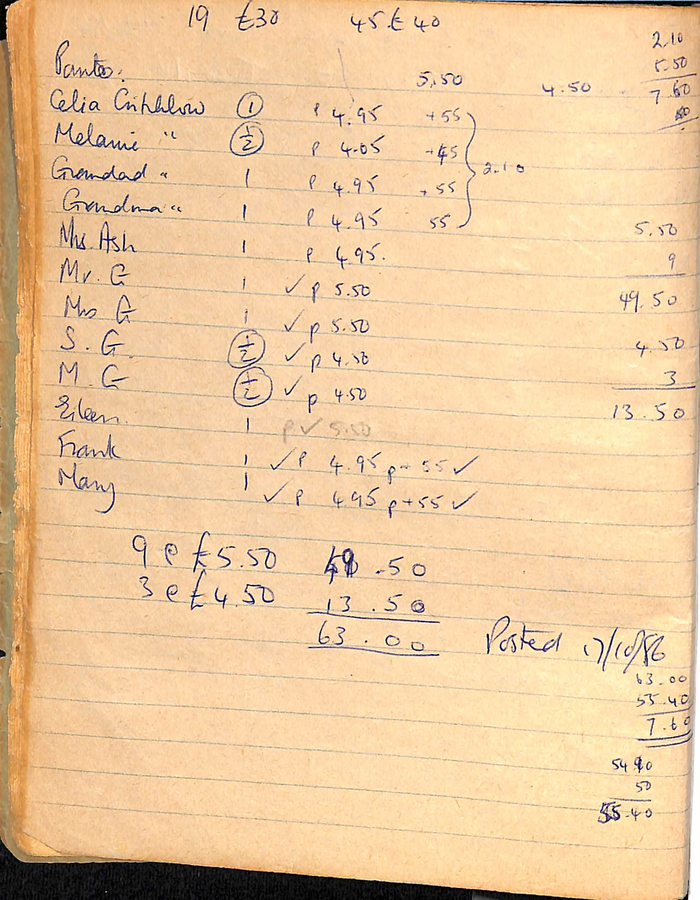 19 £30 45 £40
2.10
5.50
7.60
Panto. 5.50 4.50
Celia Critchlow 1 P 4.95 +55
Melanie " ½ P 4.05 +45
Grandad " 1 P 4.95 +55 2.10
Grandma " 1 P 4.95 55
Mrs Ash 1 P 4.95.
Mr. G 1 ✓ P 5.50
Mrs G 1 ✓ P 5.50
S. G. ½ ✓ P 4.50
M. G ½ ✓ P 4.50
Eileen. 1 P ✓ 5.50
Frank 1 ✓ P 4.95 P+55 ✓
Mary 1 ✓ P 4.95 P+55 ✓
5.50
9
49.50
4.50
3
13.50
9 @ £5.50 49.50
3 @ £4.50 13.50
63.00 Posted 17/10/86
63.00
55.40
7.60
54.90
50
55.40